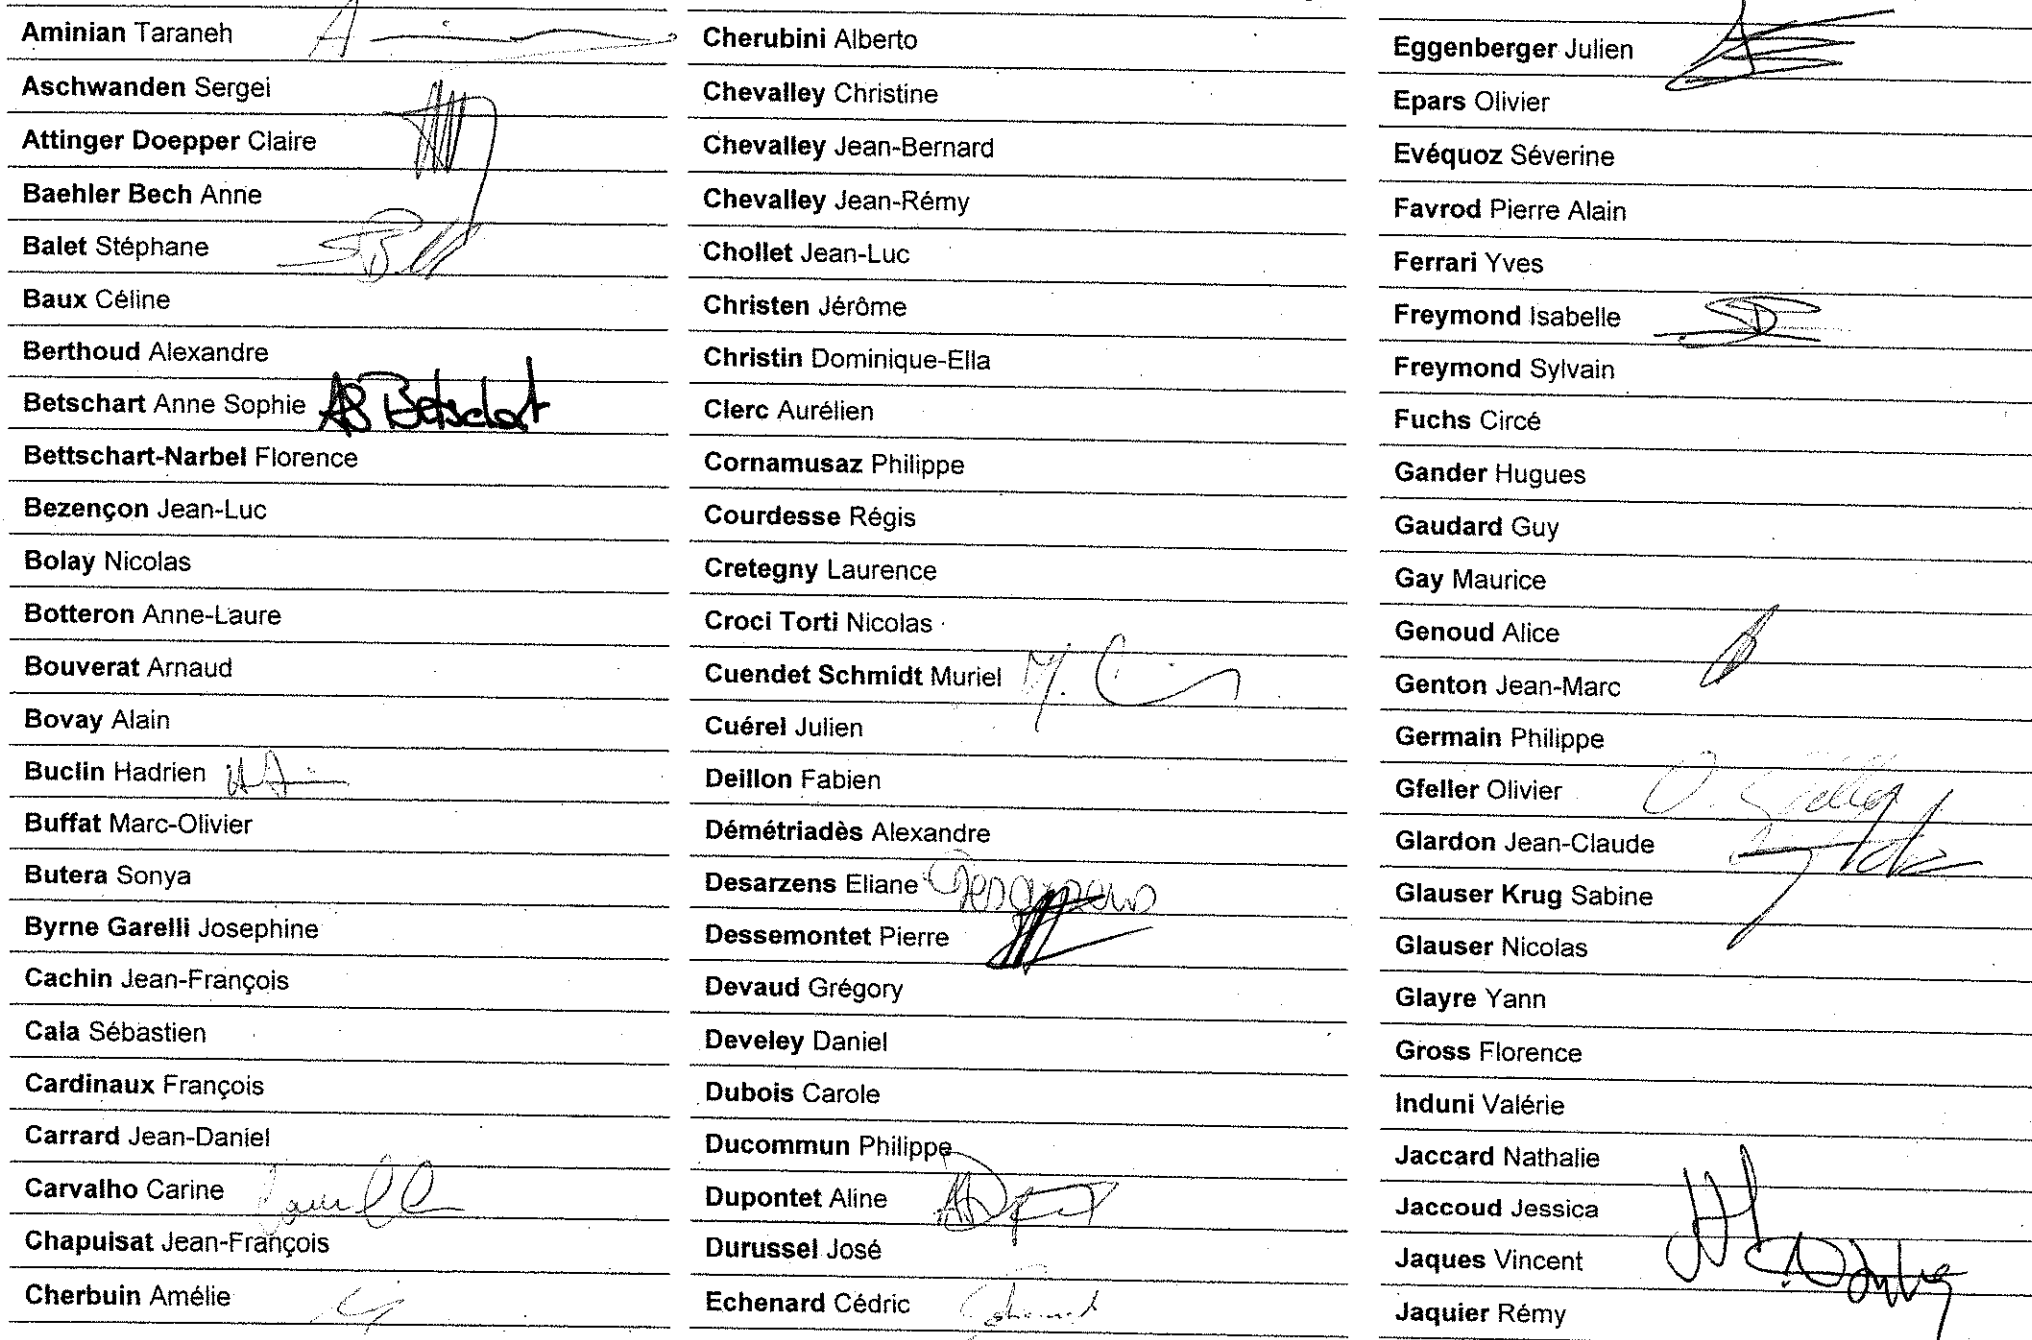 Aminian Taraneh
Aschwanden Sergei
Attinger Doepper Claire
Baehler Bech Anne
Balet Stéphane
Baux Céline
Berthoud Alexandre
Betschart Anne Sophie AS Betschart
Bettschart-Narbel Florence
Bezençon Jean-Luc
Bolay Nicolas
Botteron Anne-Laure
Bouverat Arnaud
Bovay Alain
Buclin Hadrien
Buffat Marc-Olivier
Butera Sonya
Byrne Garelli Josephine
Cachin Jean-François
Cala Sébastien
Cardinaux François
Carrard Jean-Daniel
Carvalho Carine
Chapuisat Jean-François
Cherbuin Amélie
Cherubini Alberto
Chevalley Christine
Chevalley Jean-Bernard
Chevalley Jean-Rémy
Chollet Jean-Luc
Christen Jérôme
Christin Dominique-Ella
Clerc Aurélien
Cornamusaz Philippe
Courdesse Régis
Cretegny Laurence
Croci Torti Nicolas
Cuendet Schmidt Muriel
Cuérel Julien
Deillon Fabien
Démétriadès Alexandre
Desarzens Eliane Desarzens
Dessemontet Pierre
Devaud Grégory
Develey Daniel
Dubois Carole
Ducommun Philippe
Dupontet Aline
Durussel José
Echenard Cédric
Eggenberger Julien
Epars Olivier
Evéquoz Séverine
Favrod Pierre Alain
Ferrari Yves
Freymond Isabelle
Freymond Sylvain
Fuchs Circé
Gander Hugues
Gaudard Guy
Gay Maurice
Genoud Alice
Genton Jean-Marc
Germain Philippe
Gfeller Olivier O. Gfeller
Glardon Jean-Claude
Glauser Krug Sabine
Glauser Nicolas
Glayre Yann
Gross Florence
Induni Valérie
Jaccard Nathalie
Jaccoud Jessica
Jaques Vincent
Jaquier Rémy